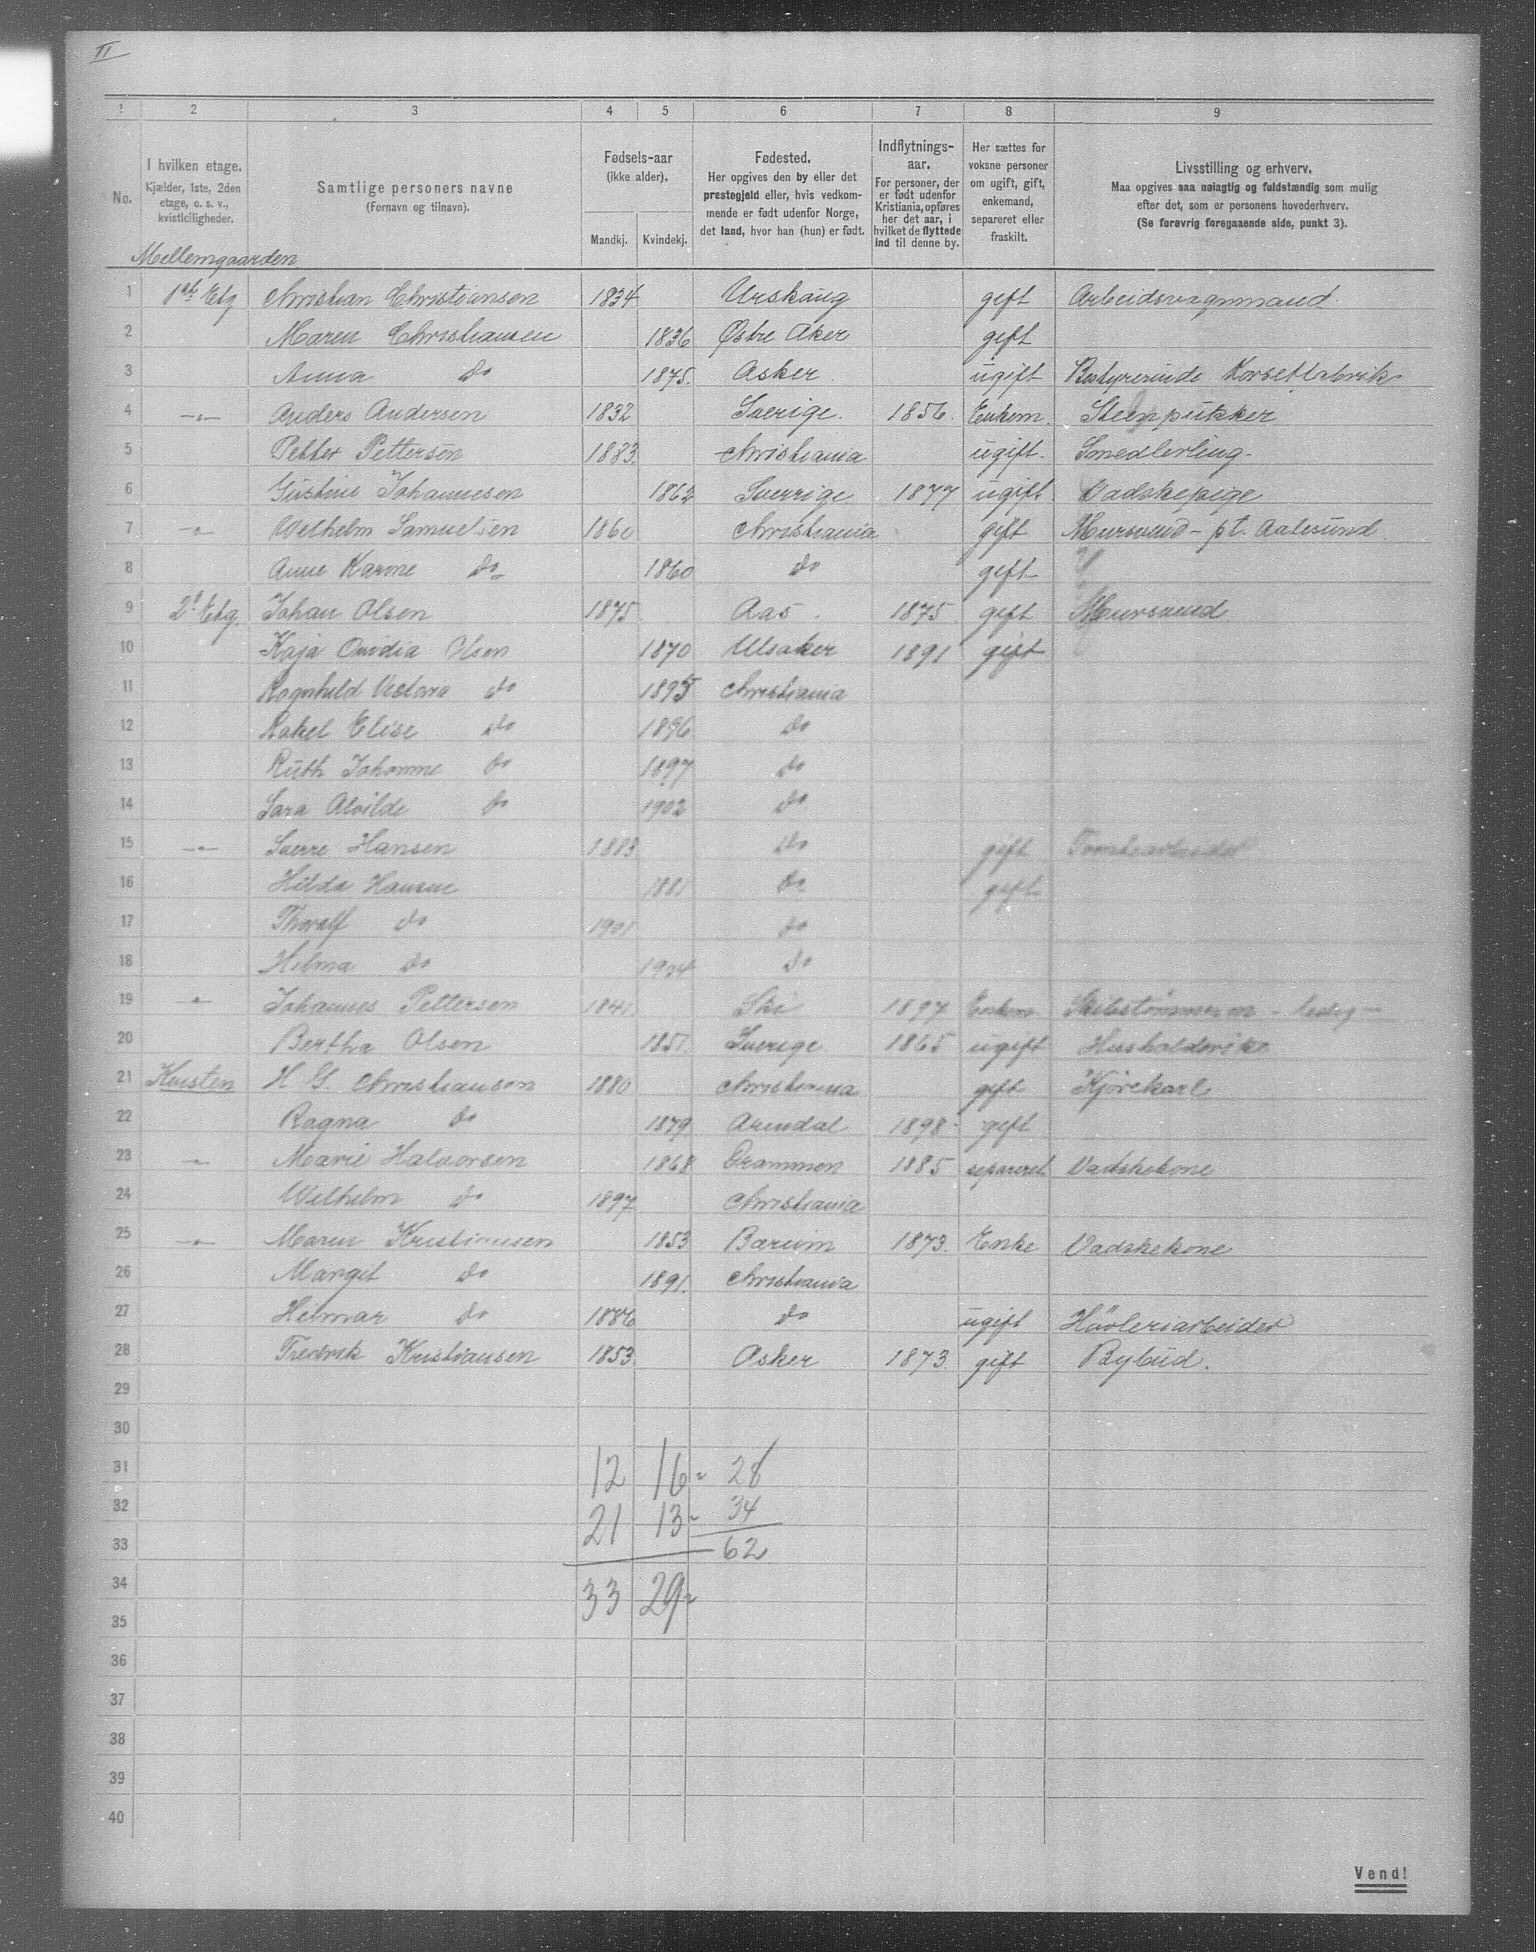 II
1 2 3 4 5 6 7 8 9
No. I hvilken etage. Kjælder, 1ste, 2den etage, o. s. v., kvistleiligheder. Samtlige personers navne (Fornavn og tilnavn). Fødsels-aar (ikke alder). Mandkj. Kvindekj. Fødested. Her opgives den by eller det prestegjeld eller, hvis vedkommende er født udenfor Norge, det land, hvor han (hun) er født. Indflytnings-aar. For personer, der er født udenfor Kristiania, opføres her det aar, i hvilket de flyttede ind til denne by. Her sættes for voksne personer om ugift, gift, enkemand, separeret eller fraskilt. Livsstilling og erhverv. Maa opgives saa nøiagtig og fuldstændig som mulig efter det, som er personens hovederhverv. (Se forøvrig foregaaende side, punkt 3).
Mellemgaarden
1 1ste Etg Christian Christiansen 1834 Urskaug gift Arbeidsvagnmand
2 Maren Christiansen 1836 Østre Aker gift
3 Anna do 1875. Asker ugift Bestyrerinde Korsetfabrik
4 —"— Anders Andersen 1832 Sverige. 1856. Enkem. Steenpukker
5 Petter Pettersen 1883. Christiania ugift. Smedlerling
6 Johannesen 1862 Sverrige 1877 ugift Vadskepige
7 —"— Wilhelm Samuelsen 1860 Christiania gift Mursvend - pt. Aalesund
8 Anne Karine do 1860 do gift
9 2d Etg. Johan Olsen 1875 Aas 1875 gift Mursvend
10 Kaja Ovidia Olsen 1870 Ulsaker 1891 gift
11 Ragnhild do 1895 Christiania
12 Rakel Elise do 1896 do
13 Ruth Johanne do 1897 do
14 Sara Alvilde do 1902 do
15 —"— Sverre Hansen 1883 do gift
16 Hilda Hansen 1881 do gift
17 Thoralf do 1901 do
18 Hilma do 1904 do
19 —"— Johannes Pettersen 1841 Ski 1897 Enkem Skibstømmerm - ledig -
20 Bertha Olsen 1851. Sverige 1865 ugift Husholderske
21 Kvisten H G. Christiansen 1880 Christiania gift Kjørekarl
22 Ragna do 1879 Arendal 1898 gift
23 —"— Marie Halvorsen 1868 Drammen 1885 separeret Vadskekone
24 Wilhelm do 1897 Christiania
25 —"— Maren Kristiansen 1853 Bærum 1873. Enke Vadskekone
26 Margit do 1891. Christiania
27 Helmar do 1886 do ugift Høvleriarbeider
28 Fredrik Kristiansen 1853 Asker 1873. gift Bybud.
29
30
31 12 16 - 28
32 21 13 - 34
33 62
34 33 29
35
36
37
38
39
40
Vend!